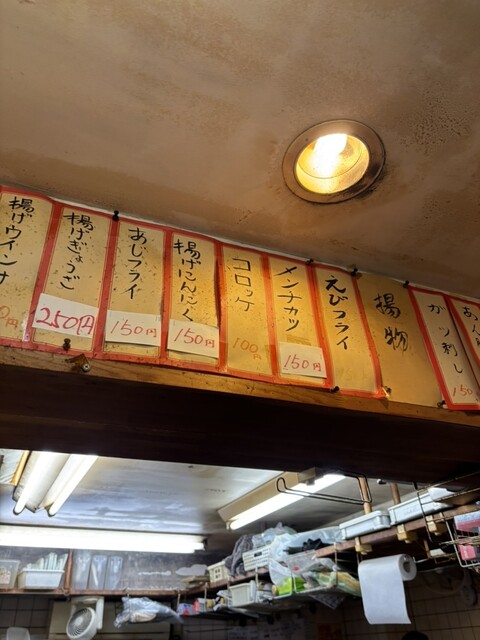 ガツ刺し
150
揚物
えびフライ
メンチカツ
150円
コロッケ
100円
揚げにんにく
150円
あじフライ
150円
揚げぎょうざ
250円
揚げウインナ
0円